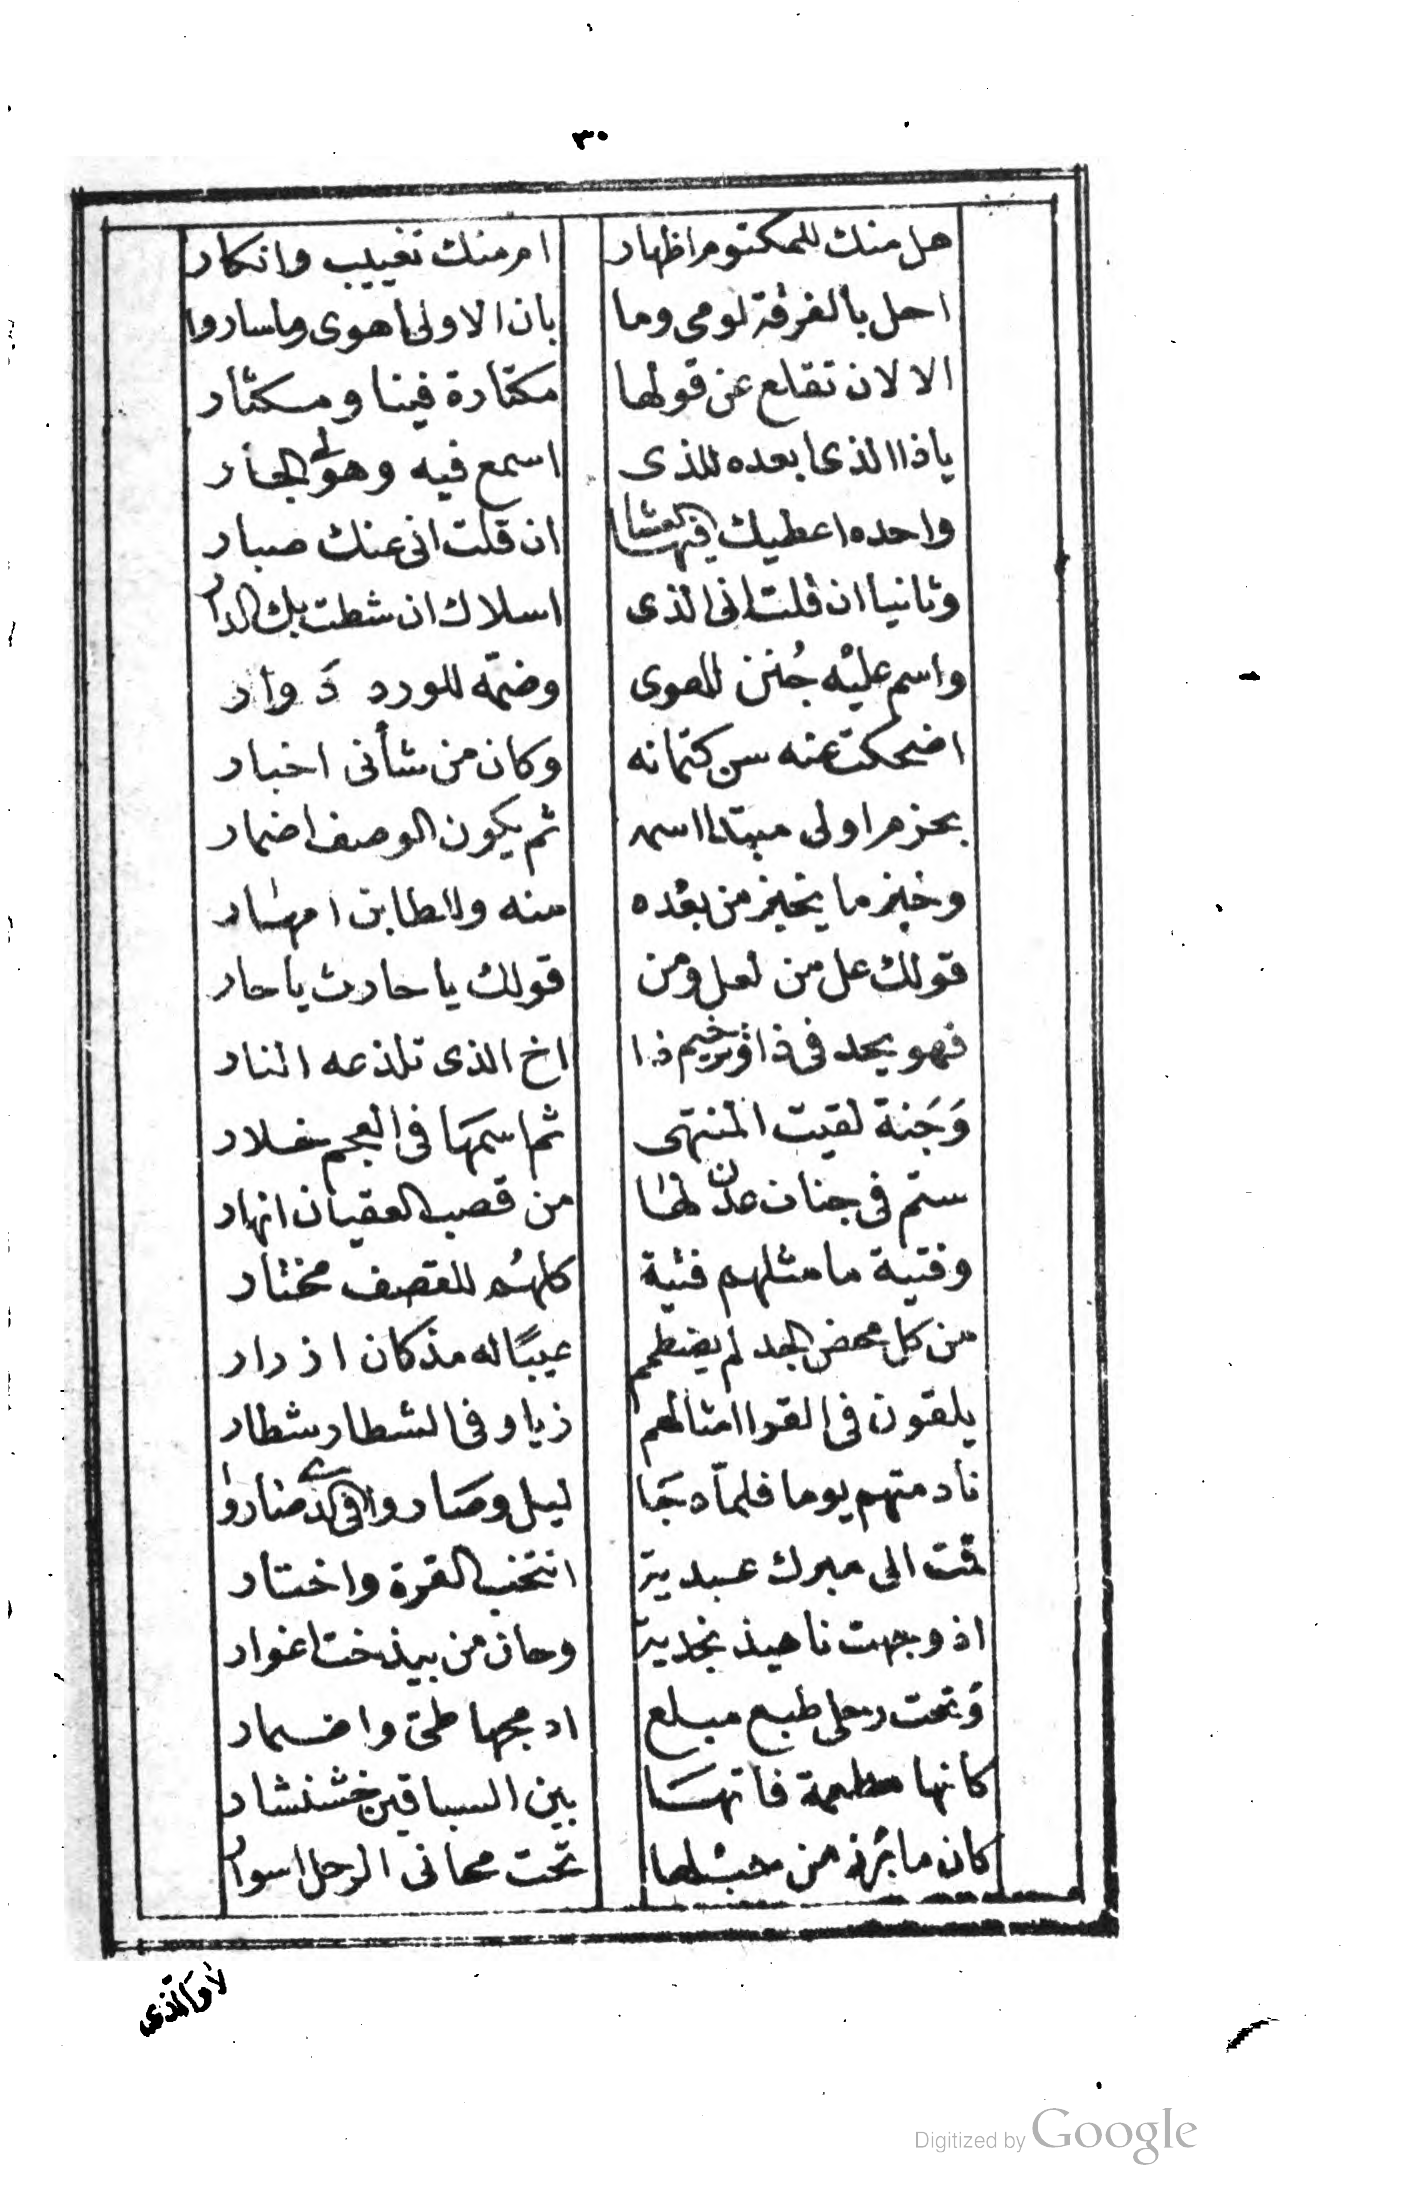 ٣٠
هل منك للمكتوم اظهار ام منك تغييب وانكار
احل بالفرقة لومى وما بان الاولى اهوى وما ساروا
الا لان تقلع عن قولها مكثارة فينا ومكثار
ياذا الذى ابعده للذى اسمع فيه وهو لى الجار
واحده اعطيك فيها العشا ان قلت انى عنك صبار
وثانيا ان قلت انى الذى اسلاك ان شطت بك الدار
واسم عليه جُنن للهوى وضمّه للورد دَوار
اضحكت عنه سن كتمانه وكان من شأنى اخبار
بحزم اولى مبتدا اسمه ثم يكون الوصف اضمار
وخيز ما يخيز من بعده منه ولالطابن امهار
قولك عل من لعل ومن قولك يا حارث يا حار
فهو بحد فى ذا وترخيم ذا اخ الذى تلذعه النار
وَجَنة لقيت المنتهى ثم اسمها فى العجم خلار
ستم فى جنات عدن لها من قصب العقيان انهار
وفتية ما مثلهم فتية كلهُم للقصف مختار
من كل محض الجد لم يضطمم عيبًا له مذ كان ازرار
يلقون فى القرا امثالهم زيا وفى الشطار شطار
نادمتهم يوما فلمّا دجَا ليل وصَاروا فى الذى صاروا
قمت الى مبرك عبدية انتخب القرة واختار
اذ وجهت ناهيذ نجدية وحان من بيذخت اغوار
وَتحت رحلى طيع مبلع ادمجها طى واضمار
كانها مطعمة فاتهَا بين السباقين خشنشار
كان ما بُرنه من حبلها تحت محانى الرحل اسوار
لا والذى
Digitized by Google